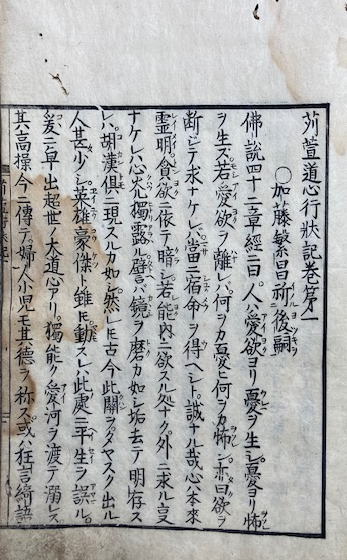 苅萱道心行狀記巻第一
〇加藤繁昌祈ニ後嗣ヲ
佛説四十二章經ニ曰。人ハ愛欲ヨリ憂ヲ生シ憂ヨリ怖
ヲ生ズ若愛欲ヲ離レバ。何ヲカ憂ヒ何ヲカ怖ン。亦曰欲ヲ
断ジテ求ナケレバ當ニ宿命ヲ得ヘシト。誠ナル哉心本来
霊明。貪欲ニ依テ暗シ。若能内ニ欲スル処ナク。外ニ求ル㕝
ナケレバ。心火獨露ル。譬バ鏡ヲ磨カ如シ垢去テ明存ス
レバ。胡漢俱ニ現スルカ如シ。然レヒ古今此關ヲタヤスク出ル
人甚少シ。英雄豪傑ト雖ヒ動スレハ此處ニ平生ヲ誤ル。
爰ニ卒出超世ノ大道心アリ。獨能ク愛河ヲ渡テ溺レズ
其高操今ニ傳テ。婦人小児モ其德ヲ称ス。或ハ狂言綺語